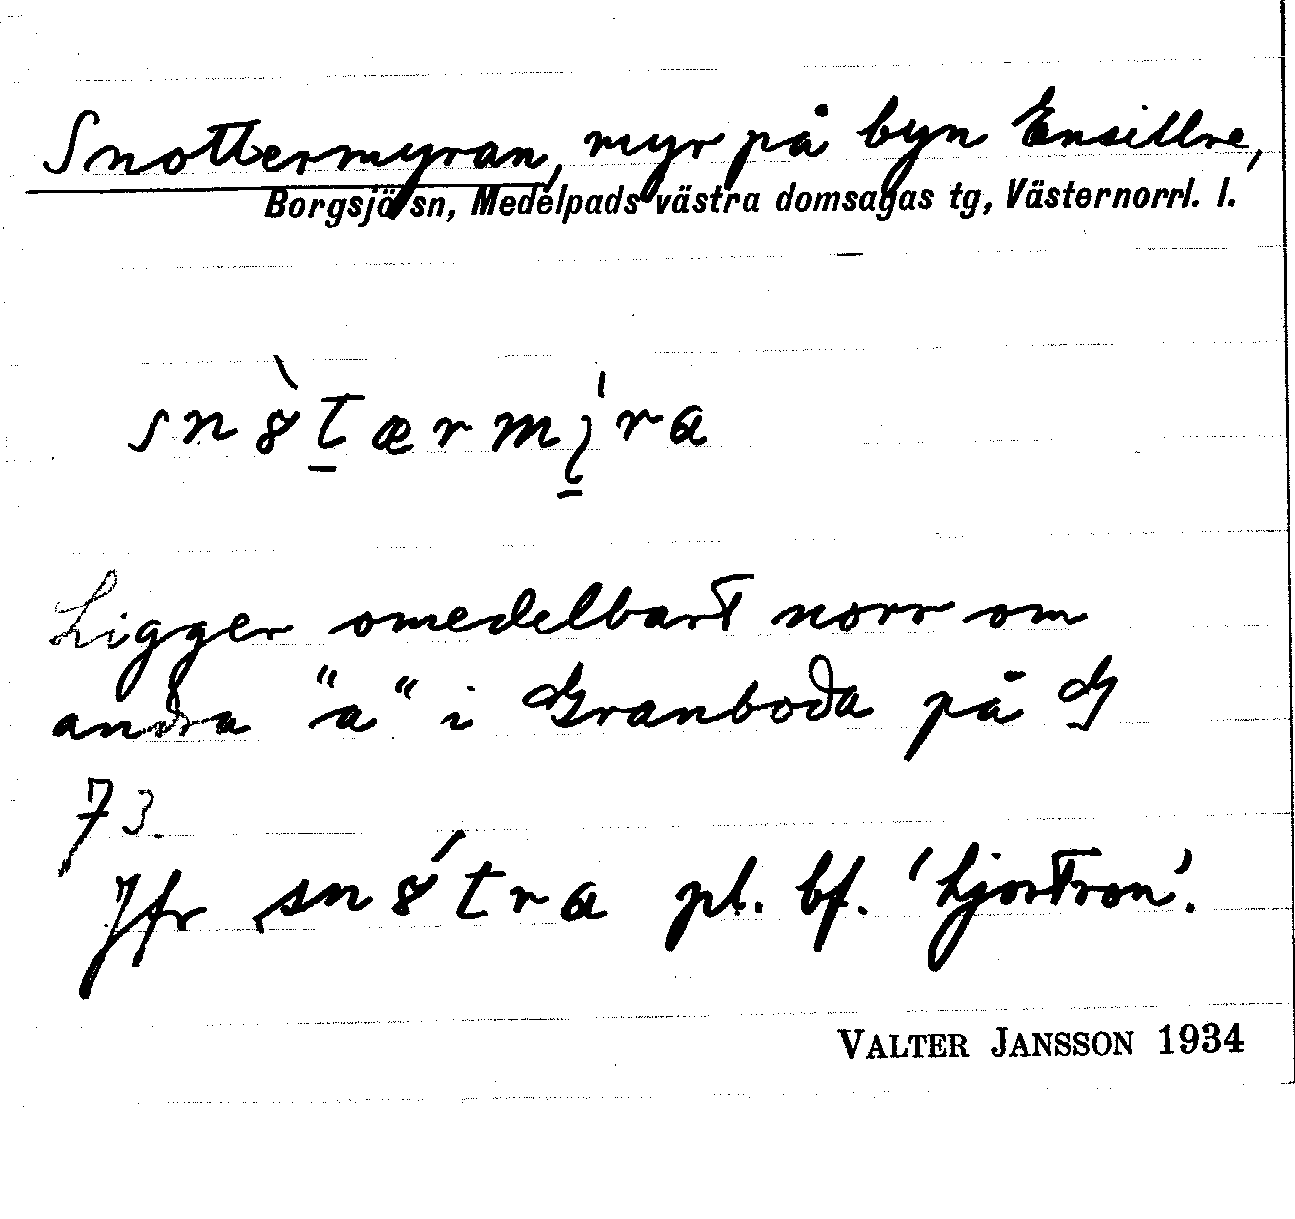 Snottermyran, myr på byn Ensillre,
Borgsjö sn, Medelpads västra domsagas tg, Västernorrl. l.
snȣ̀tærmy̍ra
Ligger omedelbart norr om
andra "a" i Granboda på G
73.
Jfr snȣ́tra pl. bf. 'hjortron'.
VALTER JANSSON 1934